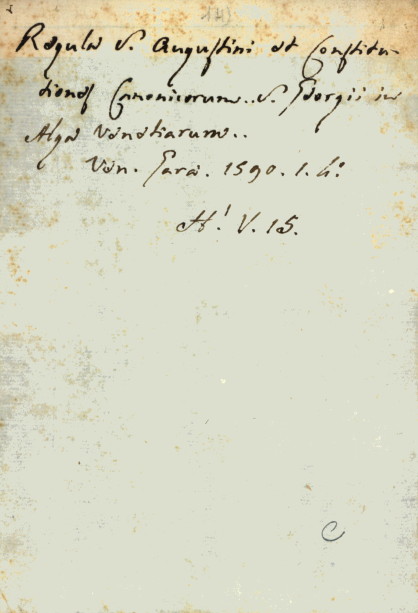 Regula S. Augustini et Constitu-
tiones Canonicorum. S. Georgii in
Alga Venetiarum..
Ven. 1590. 1. 4º
V. 15.
C